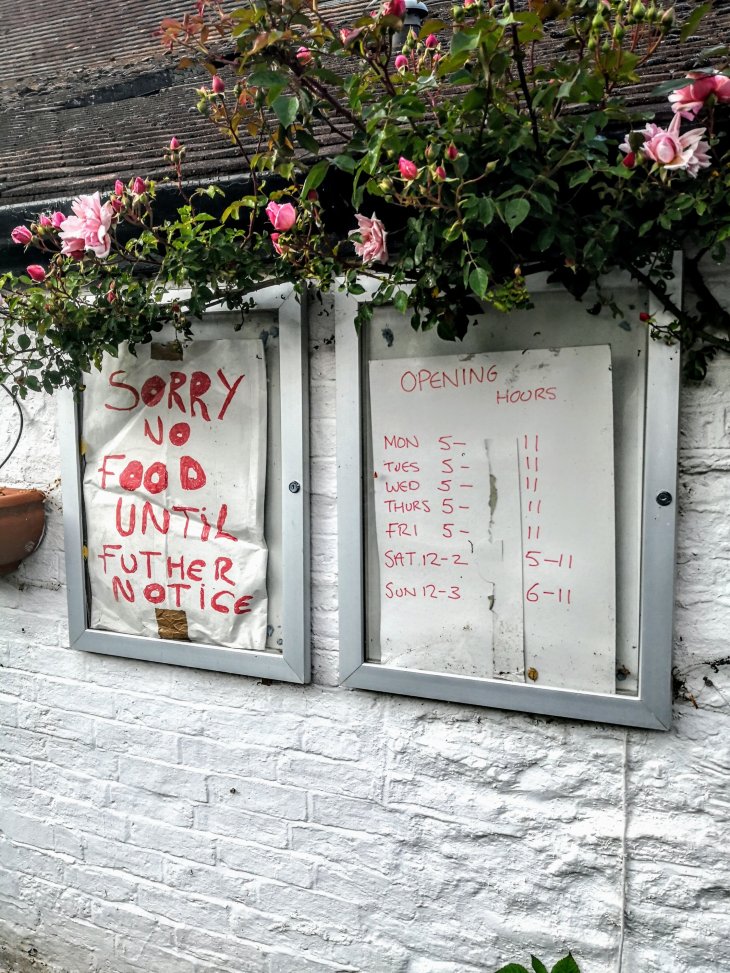 SORRY
NO
FOOD
UNTIL
FUTHER
NOTICE
OPENING
HOURS
MON 5- 11
TUES 5- 11
WED 5- 11
THURS 5- 11
FRI 5- 11
SAT 12-2 5-11
SUN 12-3 6-11